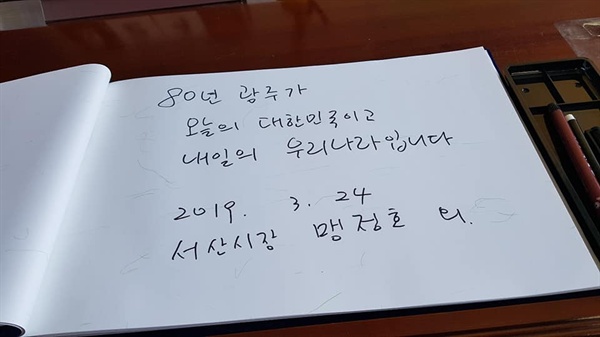 80년 광주가
오늘의 대한민국이고
내일의 우리나라입니다
2019. 3. 24
서산시장 맹정호